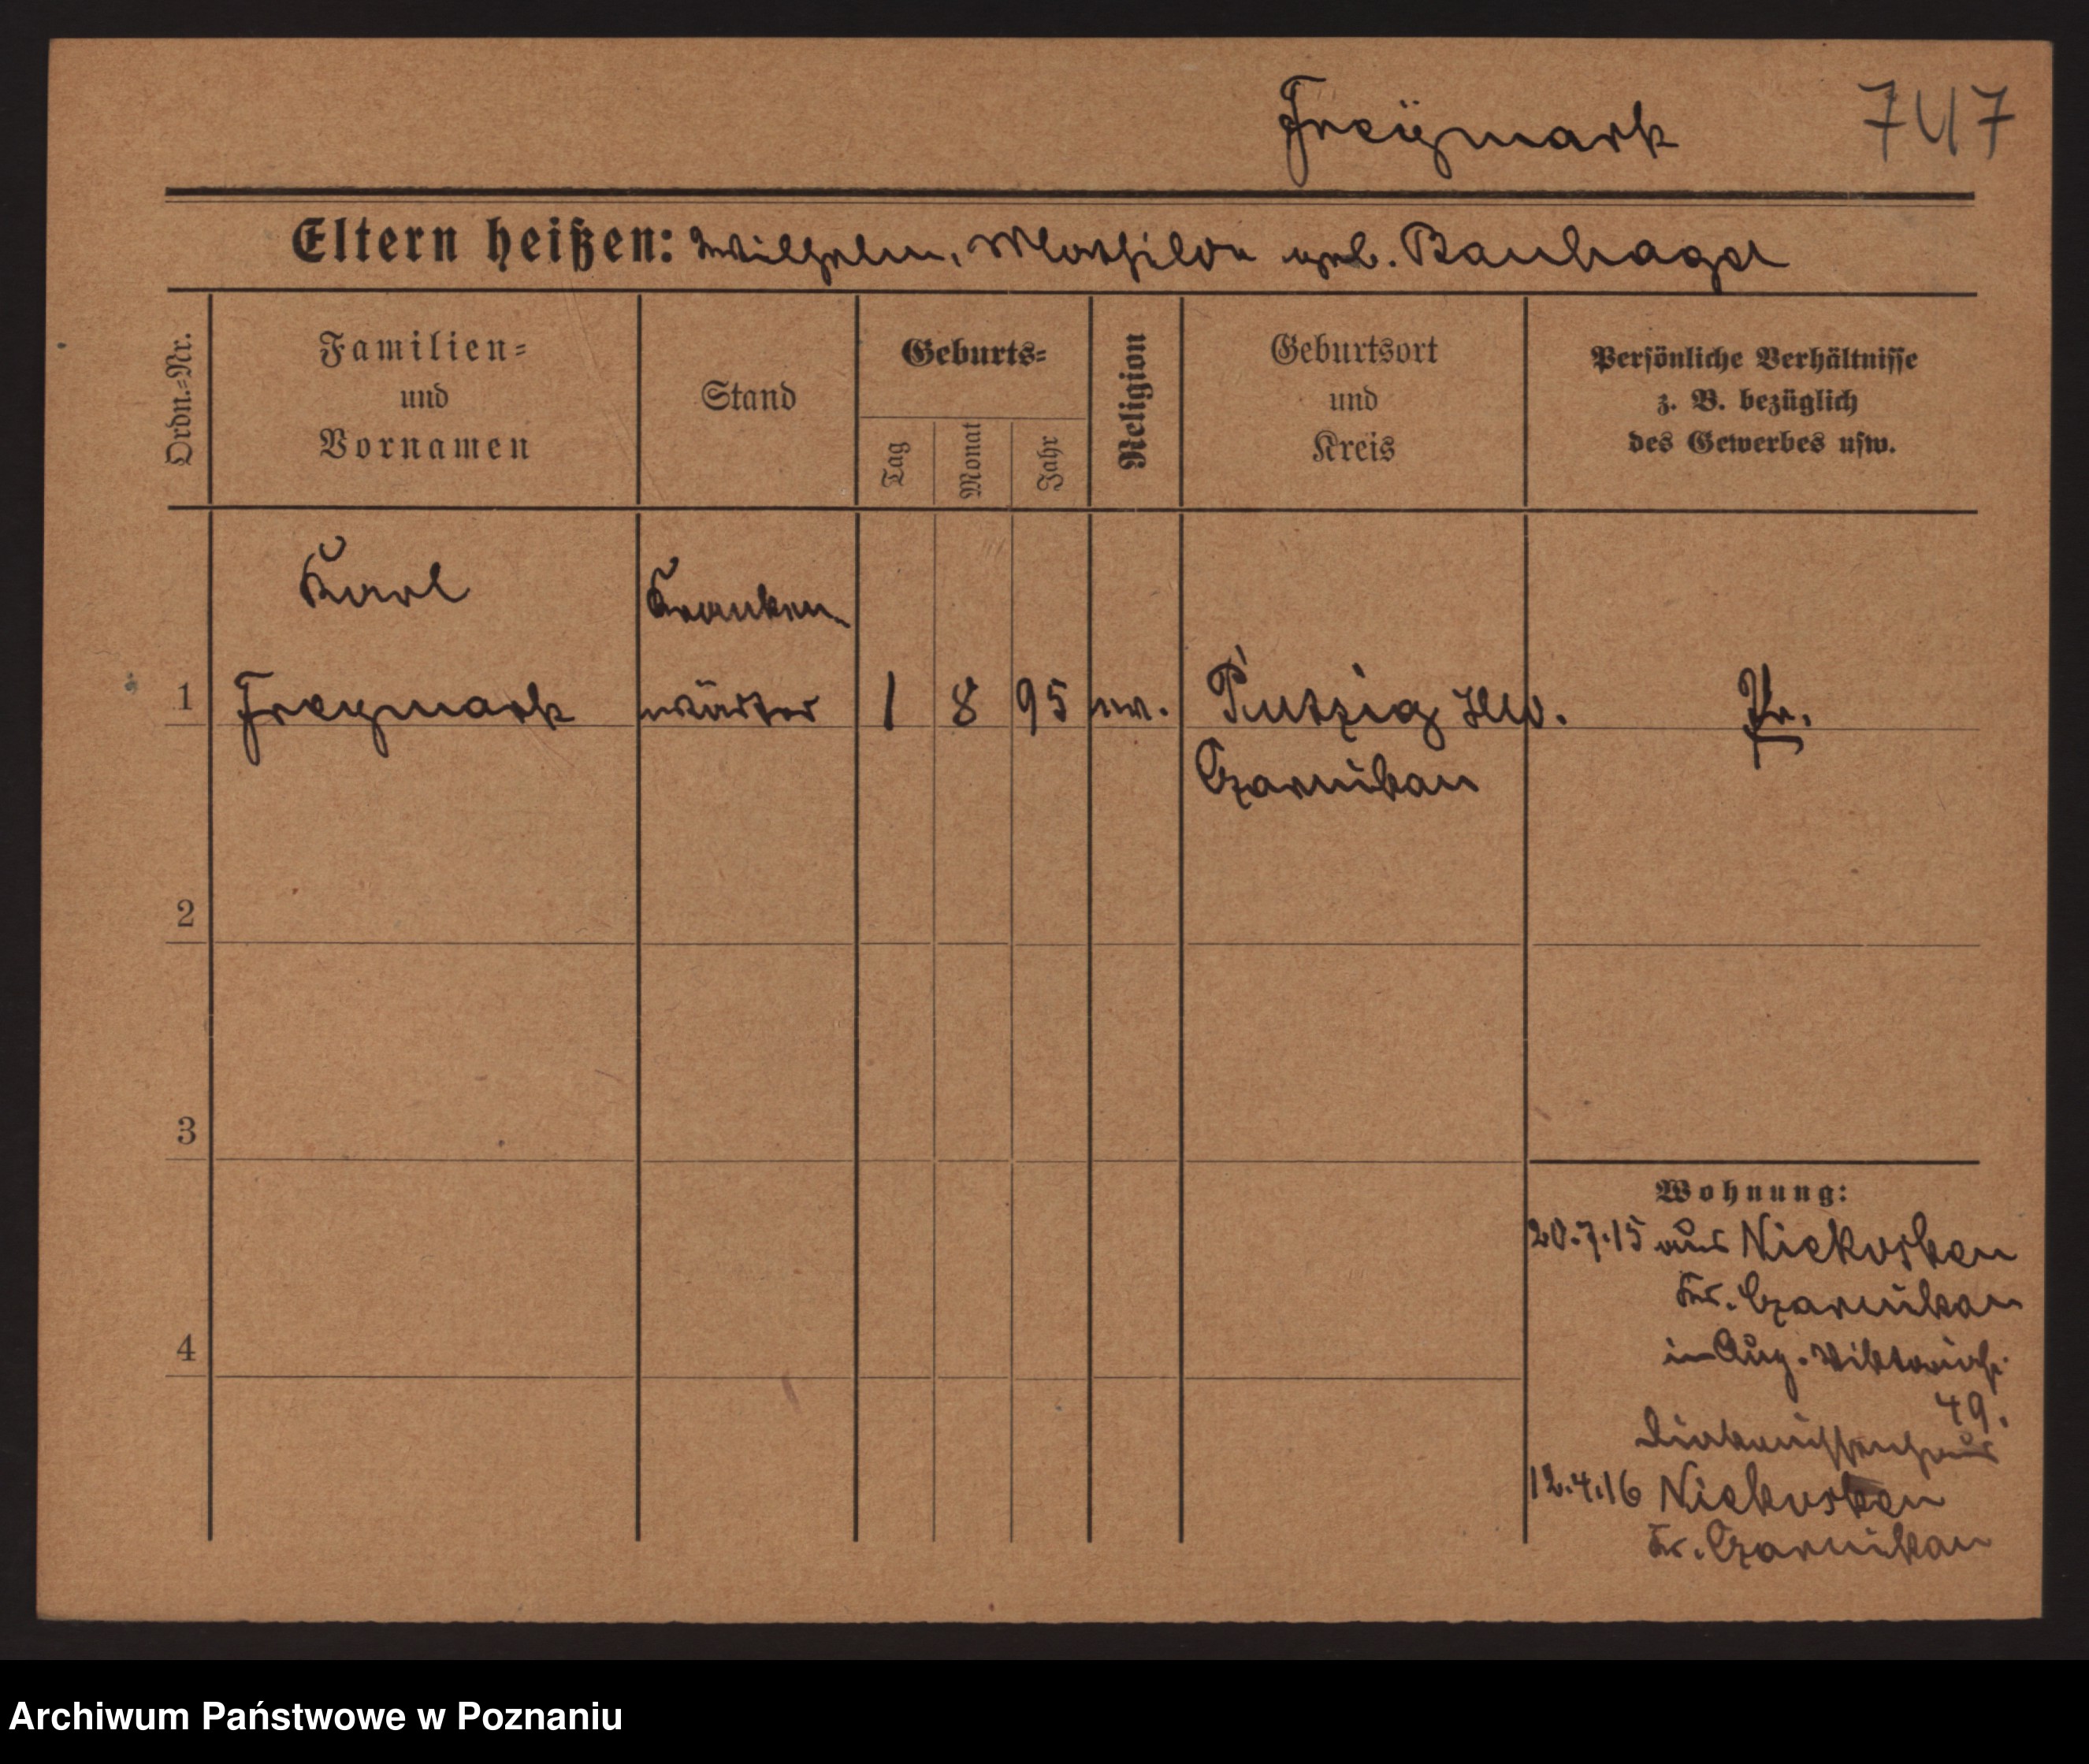 Freÿmark 747
Eltern heißen: Wilhelm, Mathilde geb. Banhagel
Ordn.-Nr.
Familien-
und
Vornamen
Stand
Geburts-
Tag
Monat
Jahr
Religion
Geburtsort
und
Kreis
Persönliche Verhältnisse
z. B. bezüglich
des Gewerbes usw.
Karl
Kranken-
1 Freymark wärter 1 8 95 ev. Putzig Hld. Pr.
Czarnikau
2
3
4
Wohnung:
20.7.15 aus Niekosken
Kr. Czarnikau
in Aug. Viktoriastr.
49.
Diakonissenhaus
12.4.16 Niekosken
Kr. Czarnikau
Archiwum Państwowe w Poznaniu